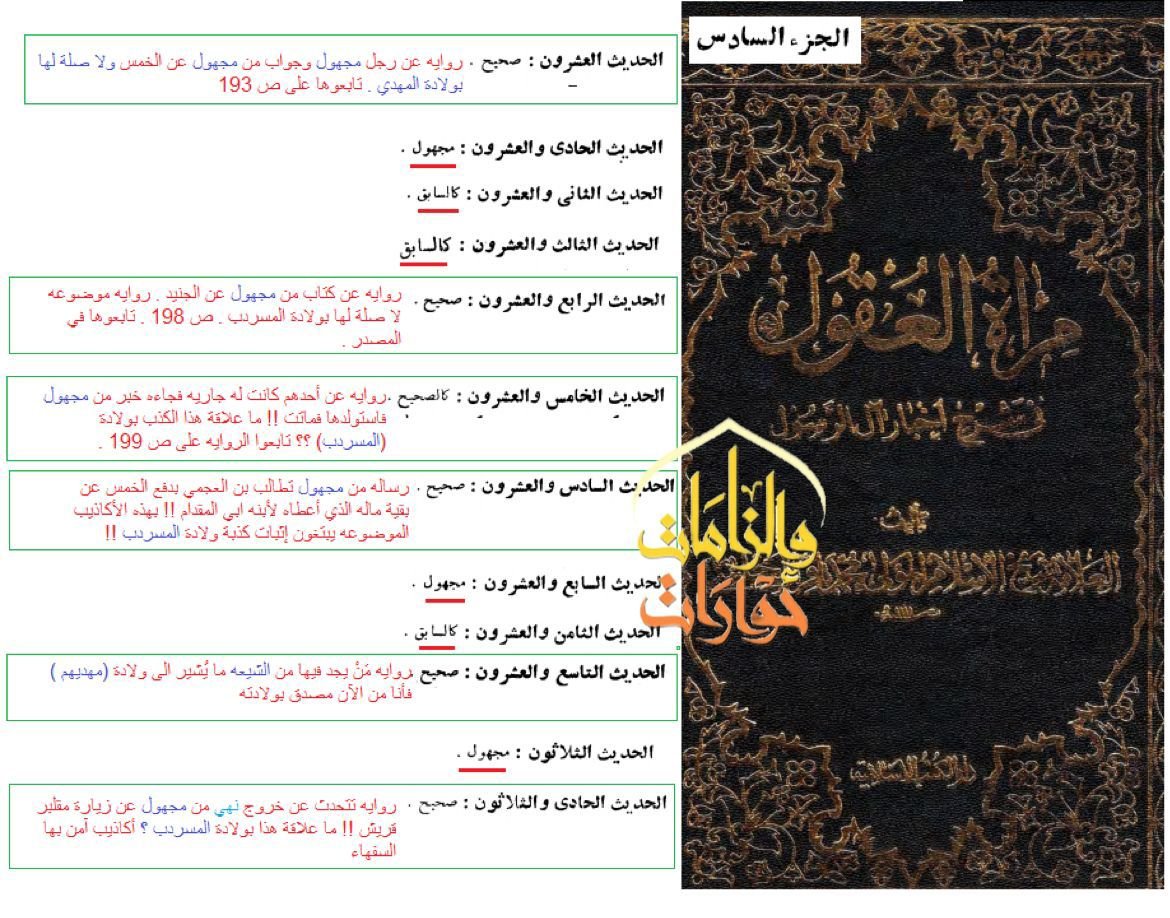 الجزء السادس
الحديث العشرون : صحيح . روايه عن رجل مجهول وجواب من مجهول عن الخمس ولا صلة لها
بولادة المهدي . تابعوها على ص 193
الحديث الحادى والعشرون : مجهول .
الحديث الثانى والعشرون : كالسابق .
الحديث الثالث والعشرون : كالسابق
الحديث الرابع والعشرون : صحيح . روايه عن كتاب من مجهول عن الجنيد . روايه موضوعه
لا صلة لها بولادة المسردب . ص 198 . تابعوها في
المصدر .
الحديث الخامس والعشرون : كالصحيح . روايه عن أحدهم كانت له جاريه فجاءه خبر من مجهول
فاستولدها فماتت !! ما علاقة هذا الكذب بولادة
(المسردب) ؟؟ تابعوا الروايه على ص 199 .
الحديث السادس والعشرون : صحيح . رساله من مجهول تطالب بن العجمي بدفع الخمس عن
بقية ماله الذي أعطاه لأبنه ابي المقدام !! بهذه الأكاذيب
الموضوعه يبتغون إثبات كذبة ولادة المسردب !!
الحديث السابع والعشرون : مجهول .
الحديث الثامن والعشرون : كالسابق .
الحديث التاسع والعشرون : صحيح . روايه مَنْ يجد فيها من الشيعه ما يُشير الى ولادة (مهديهم )
فأنا من الآن مصدق بولادته
الحديث الثلاثون : مجهول .
الحديث الحادى والثلاثون : صحيح . روايه تتحدث عن خروج نهي من مجهول عن زيارة مقابر
قريش !! ما علاقة هذا بولادة المسردب ؟ أكاذيب آمن بها
السفهاء
مرآة العقول
في شرح أخبار آل الرسول
تأليف
دار الكتب الإسلامية
والزامات
حوارات